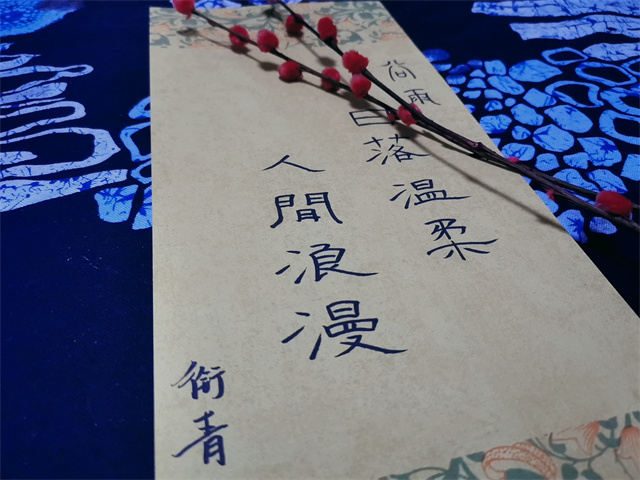 荷雨日落温柔
人間浪漫
衔青